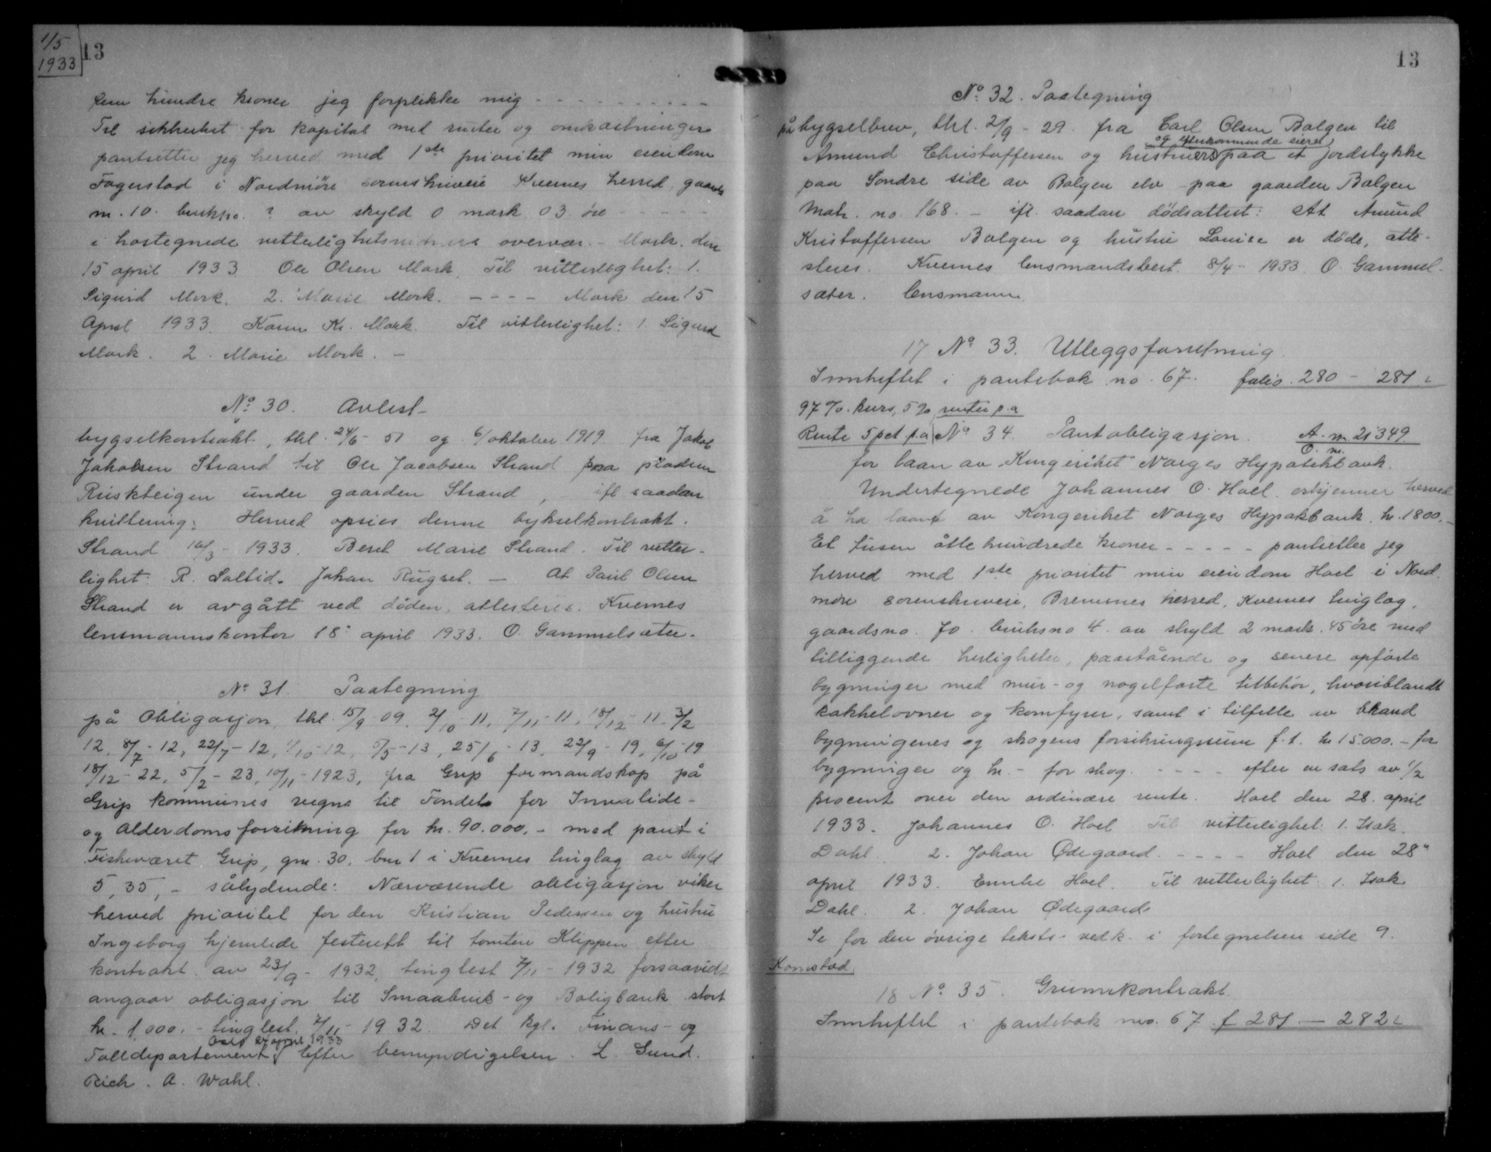 1/5
1933
13
fem hundre kroner jeg forplikke mig - - - - - - - - -
Til sikkerhet for kapital med renter og omkostninger
pantsetter jeg herved med 1ste prioritet min eiendom
Fagerstad i Nordmöre sorenskriveri Kvernes herred, gaards
nr. 10. bruksno. ? av skyld 0 mark 03 öre - - - - -
i hostegnede vitterlighetsvidners overvær. - Mork. den
15 april 1933 Ole Olsen Mork. Til vitterlighet: 1.
Sigurd Mork. 2. Marie Mork. - - - - Mork den 15
April 1933. Karen Kr. Mork. Til vitterlighet: 1. Sigurd
Mork. 2. Marie Mork. -
No 30. Avlest
bygselkontrakt, thl. 24/6 - 51 og 6/oktober 1919 fra Jakob
Jakobsen Strand til Ole Jacobsen Strand paa pladsen
under gaarden Strand, ifl saadan
kvittering: Herved opsies denne bykselkontrakt.
Strand 16/3 - 1933. Beret Marie Strand. Til vitter-
lighet. R. Saltid. Johan Rugset. - At Paul Olsen
Strand er avgått ved döden, attesteres. Kvernes
lensmannskontor 18 april 1933. O. Gammelsæter.
No 31. Paategning
på Obligasjon, thl. 15/9 09, 2/10 - 11, 7/11 - 11, 18/12 - 11 - 3/2
12, 8/7 - 12, 22/7 - 12, 1/10 - 12, 5/5 - 13, 25/6 - 13, 22/9 - 19, 6/10 - 19
18/12 - 22, 5/2 - 23, 10/11 - 1923, fra Grip formandskap på
Grip kommunes vegne til Fondet for Invalide-
og Alderdomsforsikring for kr. 90.000,- med pant i
Fiskeværet Grip, gnr. 30, bnr 1 i Kvernes tinglag av skyld
5,35,- sålydende: Nærværende obligasjon viker
herved prioritet for den Kristian Pedersen og hustru
Ingeborg hjemlede festerett til tomten Klippen efter
kontrakt av 23/9 - 1932, tinglest 7/11 - 1932 forsaavidt
angaar obligasjon til Smaabruk- og Boligbank stort
kr. 1.000.- tinglest 7/11 - 1932. Det kgl. Finans- og
Oslo 27 april 1933
Tolldepartement, Efter bemyndigelsen. L. Sund.
Rich. A. Wahl.
13
No 32. Paategning
på bygselbrev, thl. 2/9 - 29. fra Carl Olsen Bolgen til
og efterkommende eiere
Amund Christoffersen og hustrue paa et jordstykke
paa Söndre side av Bolgen elv paa gaarden Bolgen
Matr. no. 168. - ifl. saadan dödsattest: At Amund
Kristoffersen Bolgen og hustru Louise er döde, atte-
steres. Kvernes lensmandsbest. 8/4 - 1933 O. Gammel-
sæter. lensmann.
17 No 33. Utleggsforretning
Innheftet i pantebok no. 67. folio 280 - 281
97 % kurs, 5 % renter p.a
Rente 5 pct p.a No 34. Pantobligasjon. A. nr 21349
O. nr.
for laan av Kongeriket Norges Hypotekbank.
Undertegnede Johannes O. Hoel erkjenner herved
å ha laant av Kongeriket Norges Hypotekbank kr. 1800.-
Et tusen åtte hundrede kroner - - - - - pantsetter jeg
herved med 1ste prioritet min eiendom Hoel i Nord-
möre sorenskriveri, Bremsnes herred, Kvernes tinglag,
gaardsno. 70. bruksno 4. av skyld 2 mark. 45 öre med
tilliggende herligheter, paastående og senere opförte
bygninger med mur- og nagelfaste tilbehör, hvoriblandt
kakkelovner og komfyrer, samt i tilfelle av brand
bygningenes og skogens forsikringssum f.t. kr 15.000.- for
bygninger og kr. - for skog. - - - - efter en sats av 1/2
procent over den ordinære rente. Hoel den 28. april
1933. Johannes O. Hoel Til vitterlighet: 1. Isak
Dahl 2. Johan Ödegaard. - - - - Hoel den 28
april 1933. Emelie Hoel. Til vitterlighet 1. Isak
Dahl. 2. Johan Ödegaard.
Se for den övrige tekst vedk. i fortegnelsen side 9.
Komstad.
18 No 35. Grunnkontrakt
Innheftet i pantebok no. 67 f 281 - 282